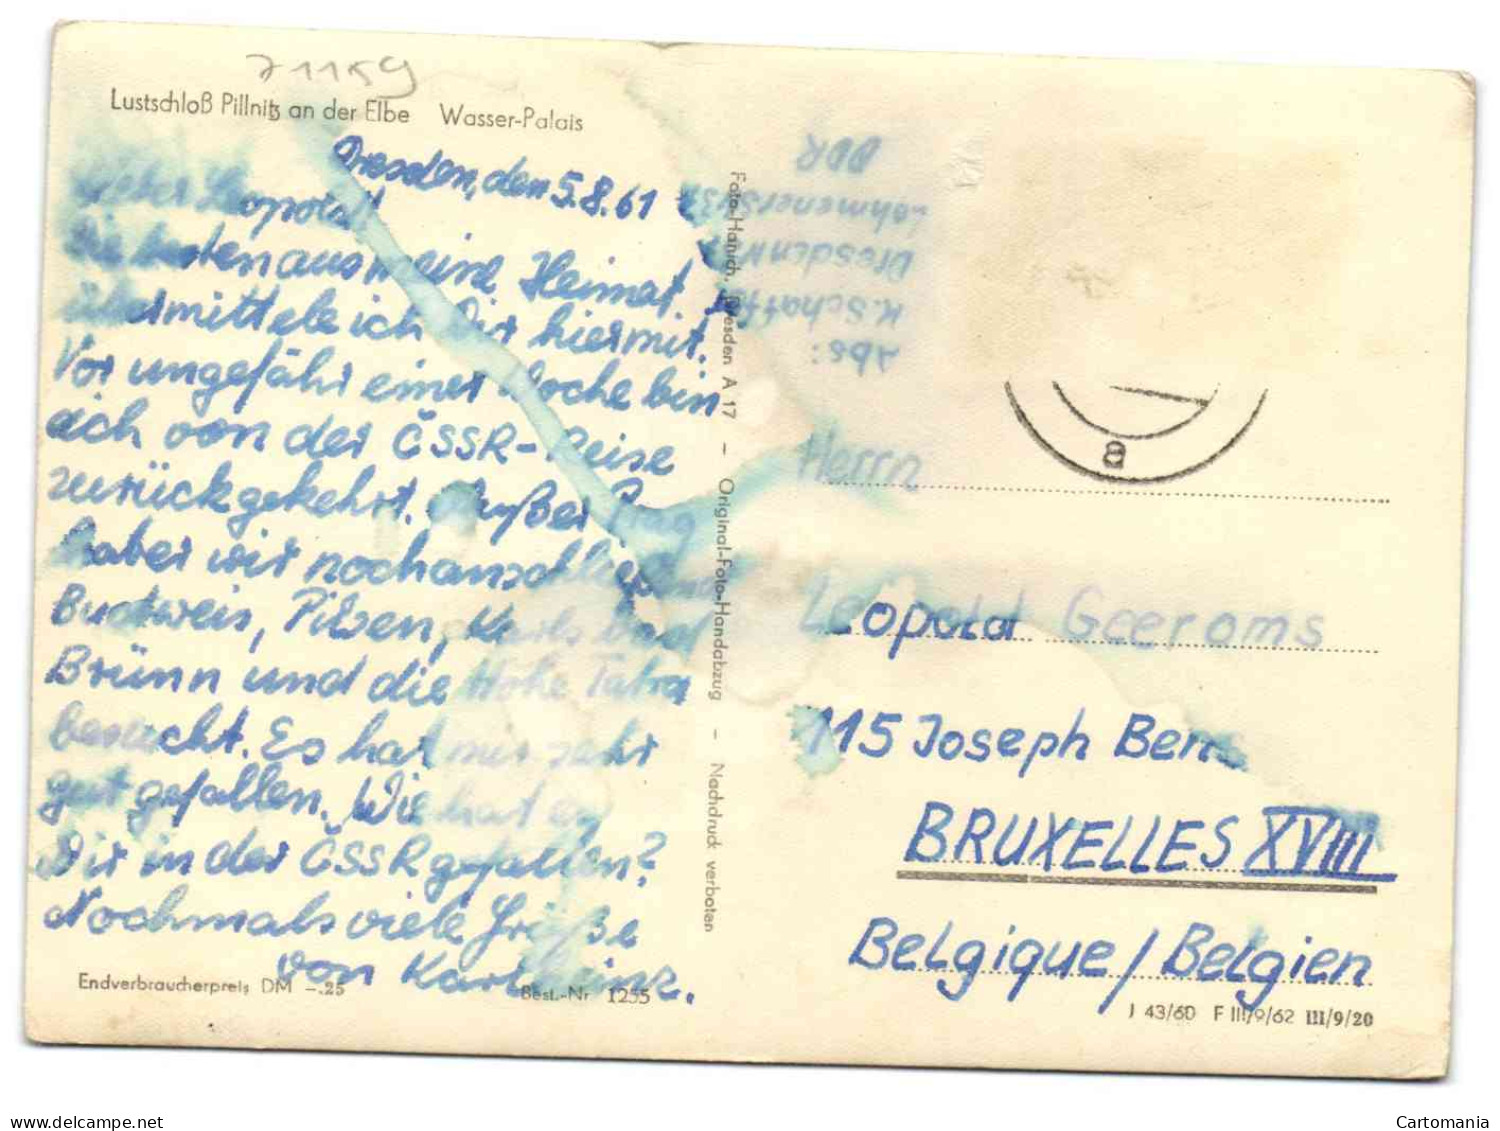 71159
Lustschloß Pillnitz an der Elbe Wasser-Palais
Dresden, den 5.8.61
Lieber Leopold!
Die besten aus meine Heimat.
übermittele ich Dir hiermit.
Vor ungefähr einer Woche bin
ich von der ČSSR-Reise
zurückgekehrt. Außer Prag
haben wir noch anschließend
Budweis, Pilsen, Karlsbad
Brünn und die Hohe Tatra
besucht. Es hat mir sehr
gut gefallen. Wie hat es
Dir in der ČSSR gefallen?
Nochmals viele Grüße
von Karlheinz.
Endverbraucherpreis DM -.25 Best.-Nr 1255
Foto-Hanich, Dresden A 17 – Original-Foto-Handabzug – Nachdruck verboten
Abs:
K. Schaff
Dresden
Lohmenerstr
DDR
a
Herrn
Leopold Geeroms
115 Joseph Bens
BRUXELLES XVIII
Belgique/Belgien
J 43/60 F III/9/62 III/9/20
www.delcampe.net
Cartomania